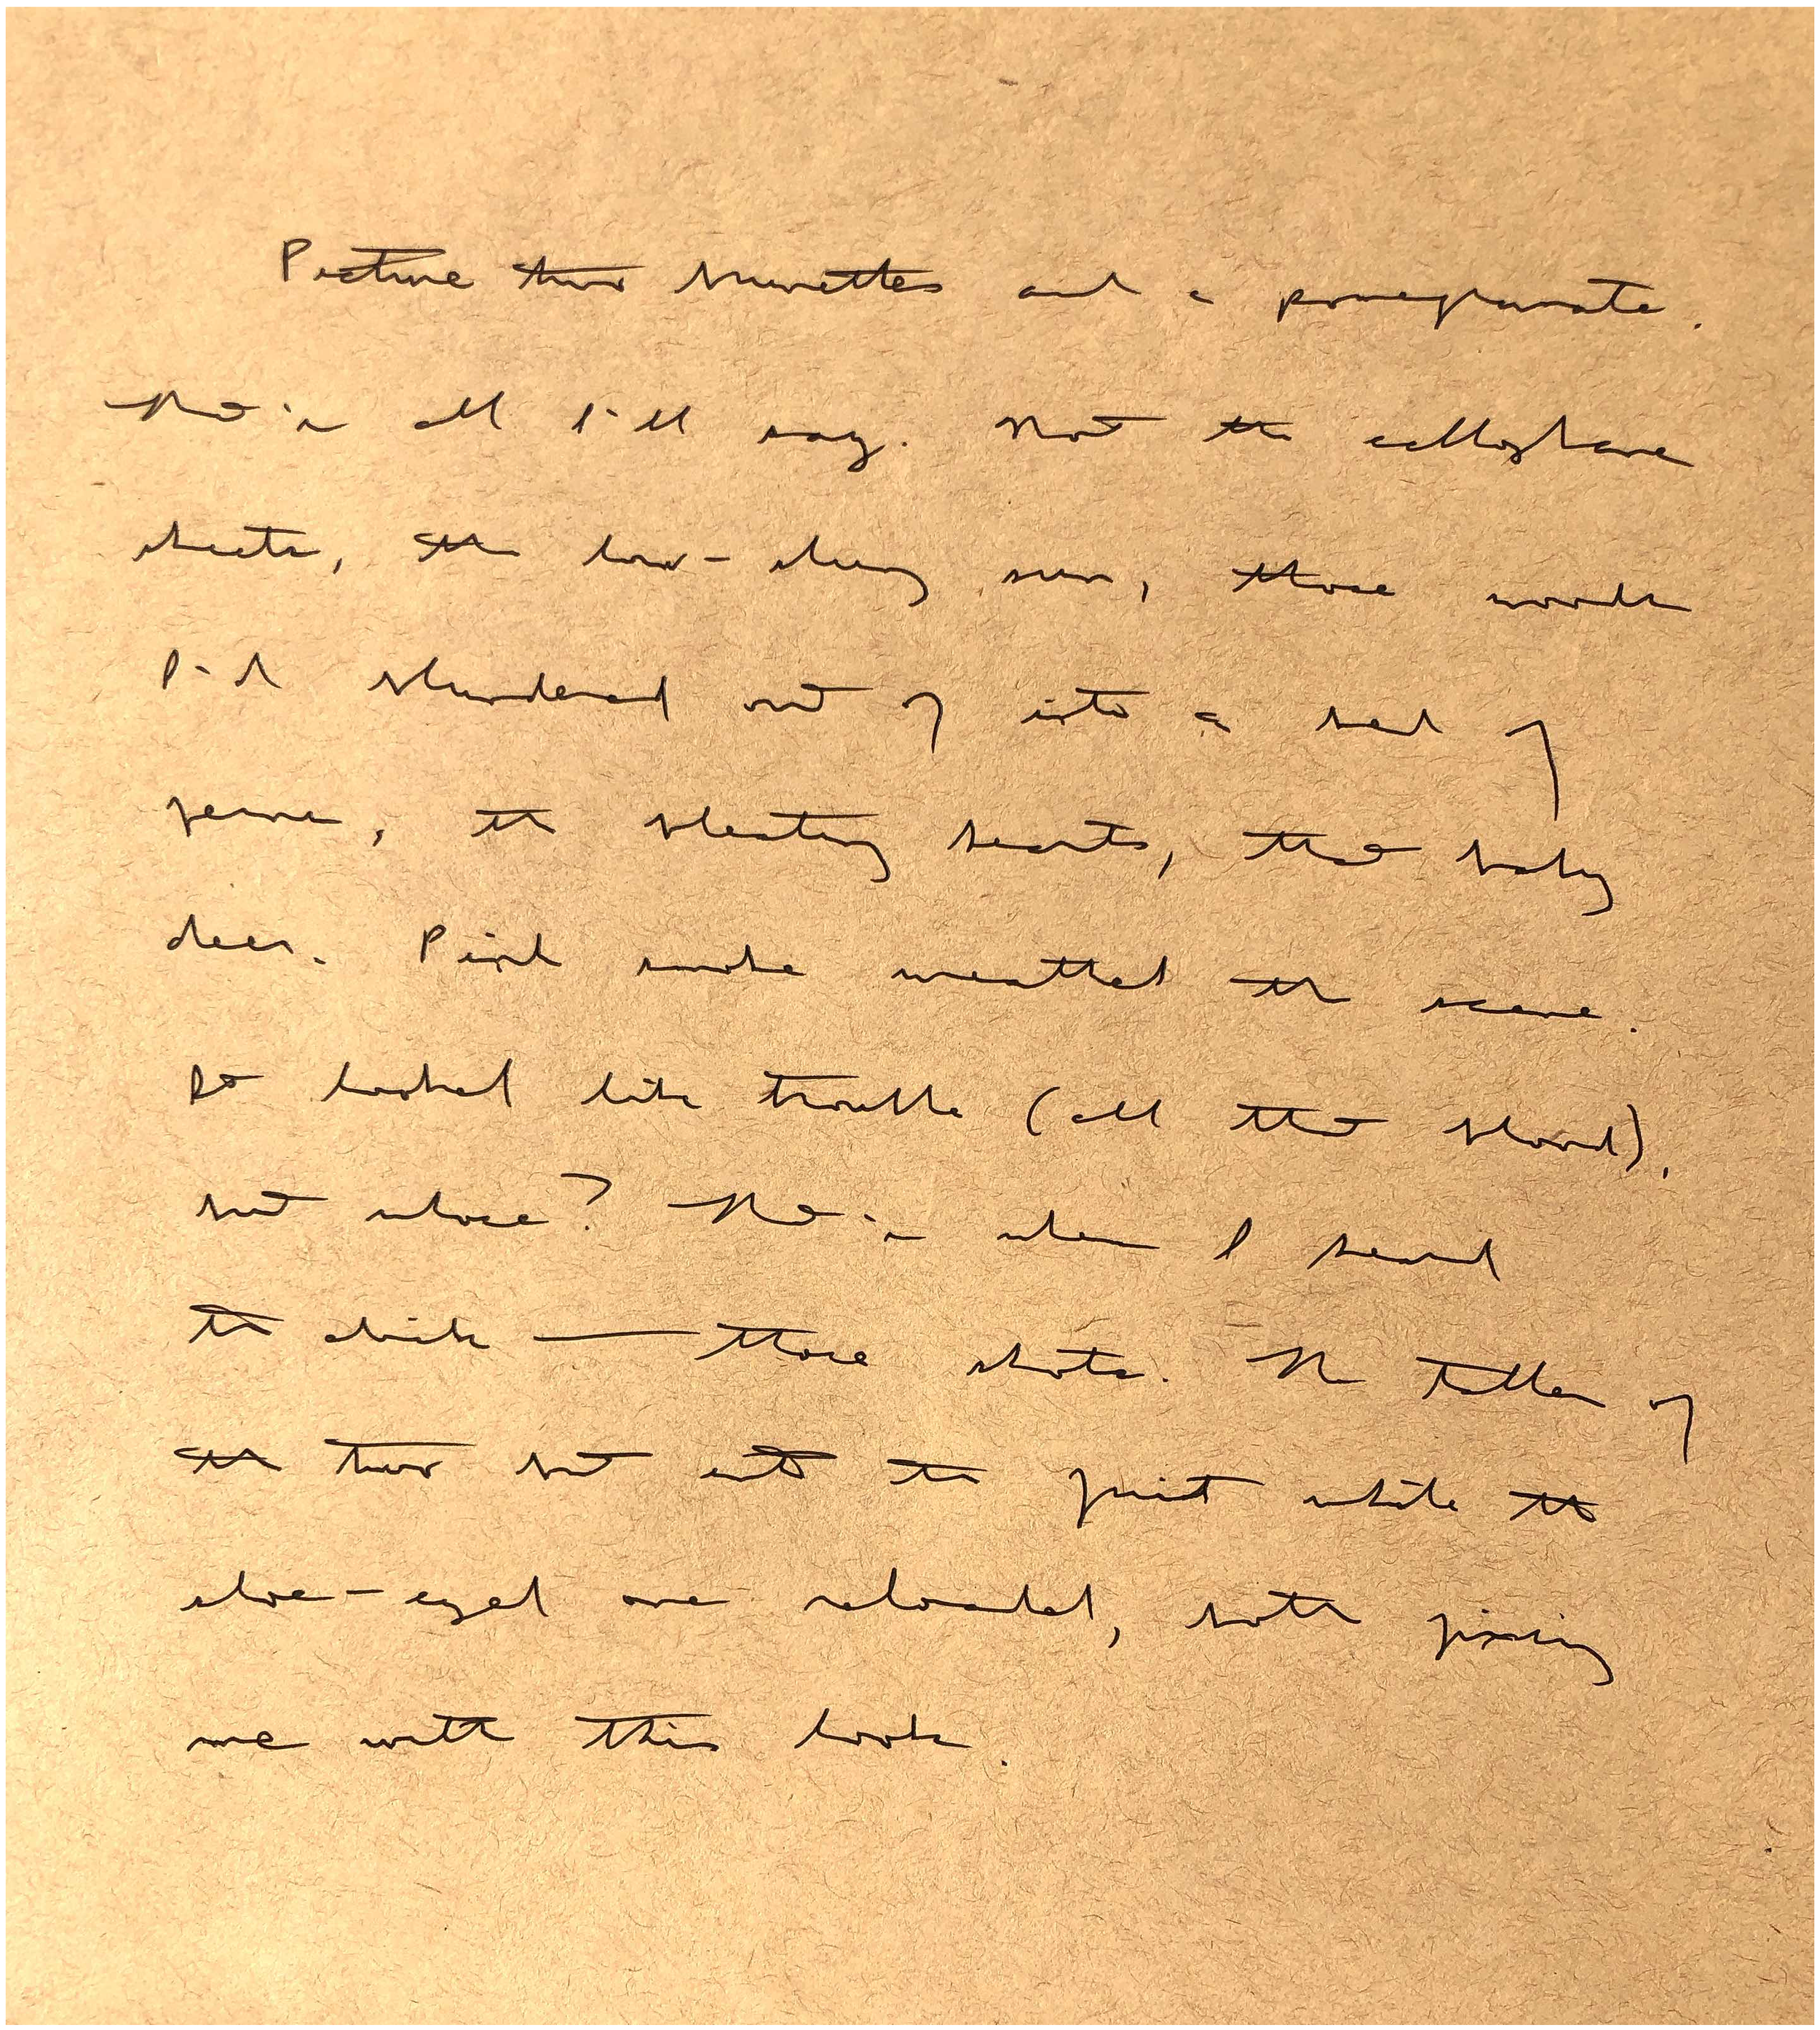 Picture two brunettes and a pomegranate.
That's all I'll say. Not the cellophane
sheets, the low-slung sun, those woods
I'd blundered out of into a bed of
ferns, the bleating hearts, that baby
deer. Pink smoke wreathed the scene.
It looked like trouble (all that blood),
but whose? That's when I heard
the clicks — those shots. The taller of
the two bit into the fruit while the
doe-eyed one reloaded, both fixing
me with this look.